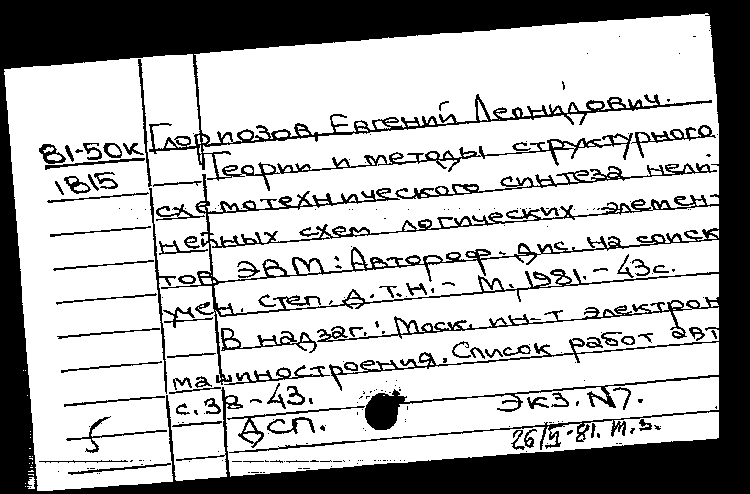 Глориозов, Евгений Леонидович.
81-50К
1815
Теории и методы структурного
схемотехнического синтеза нели-
нейных схем логических элемен-
тов ЭВМ: Автореф. дис. на соиск
учен. степ. д.т.н. - М., 1981. - 43с.
В надзаг.: Моск. ин-т электрон
машиностроения. Список работ авт
с. 38-43.
ДСП.
экз. N7.
26/5-81. т.з.
5